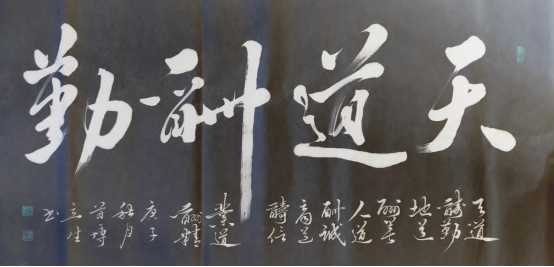 天道酬勤
天道
醻勤
地道
酬善
人道
酬誠
商道
醻信
業道
酬精
庚子
秋月
立生
书